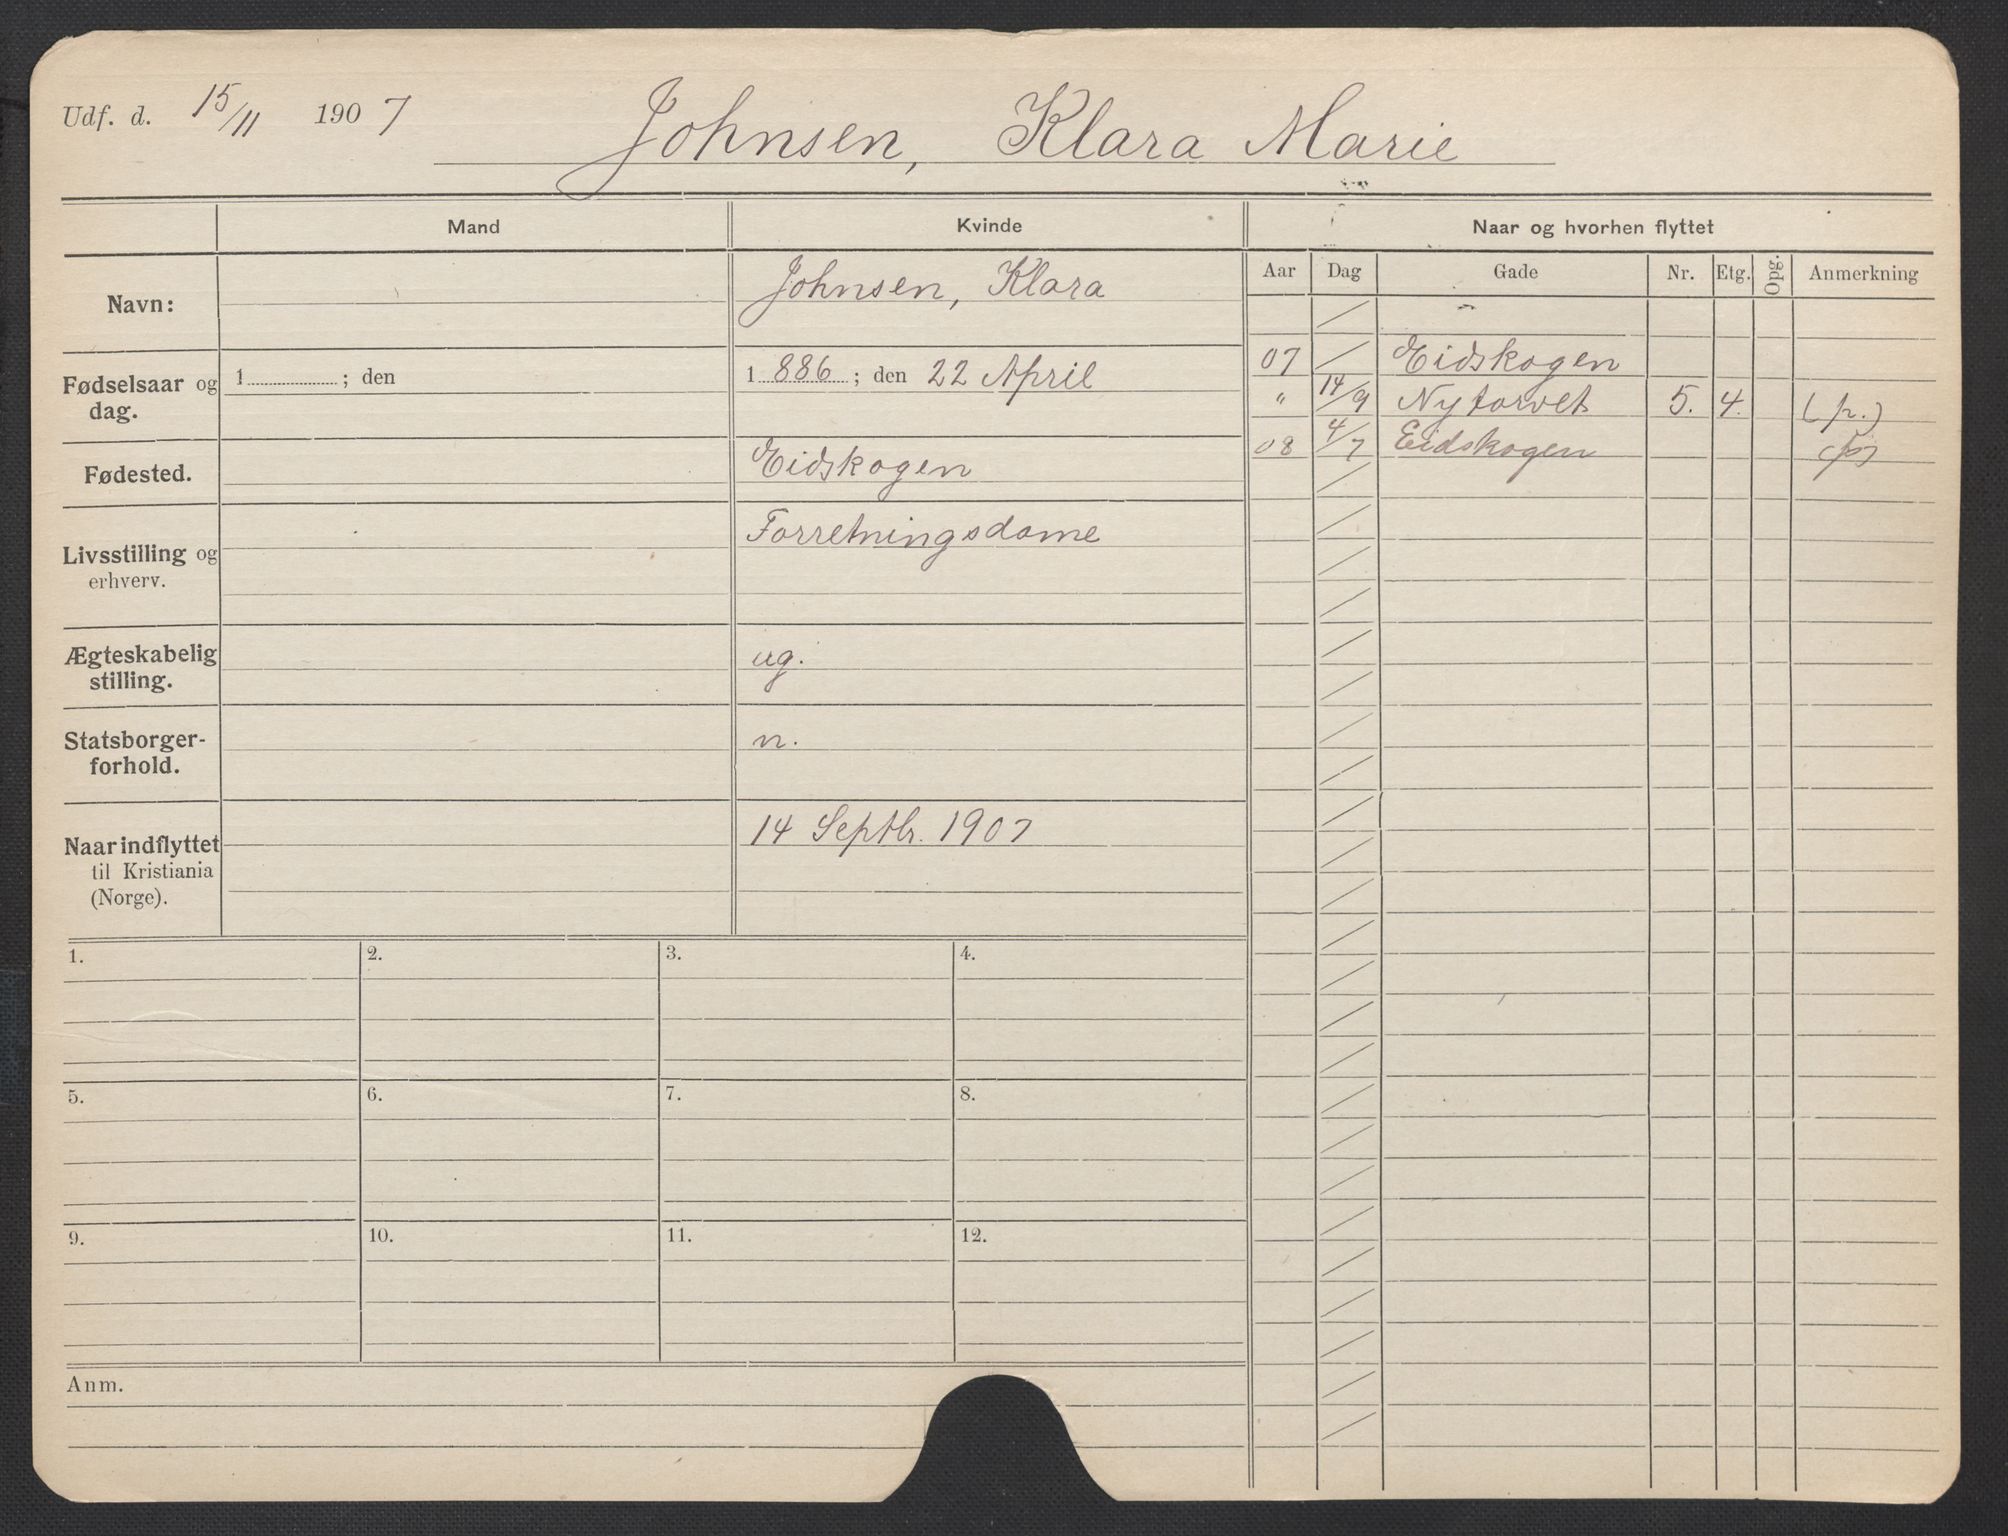 Udf. d. 15/11 1907 Johnsen, Klara Marie
Mand Kvinde Naar og hvorhen flyttet
Aar Dag Gade Nr. Etg. Opg. Anmerkning
Navn: Johnsen, Klara
07 / Eidskogen
Fødselsaar og dag. 1 ; den 1886 ; den 22 April
" 14/9 Nytorvet 5. 4. (p.)
08 4/7 Eidskogen (p)
Fødested. Eidskogen
Livsstilling og erhverv. Forretningsdame
Ægteskabelig stilling. ug.
Statsborgerforhold. n.
Naar indflyttet til Kristiania (Norge). 14 Septbr. 1907
1. 2. 3. 4.
5. 6. 7. 8.
9. 10. 11. 12.
Anm.